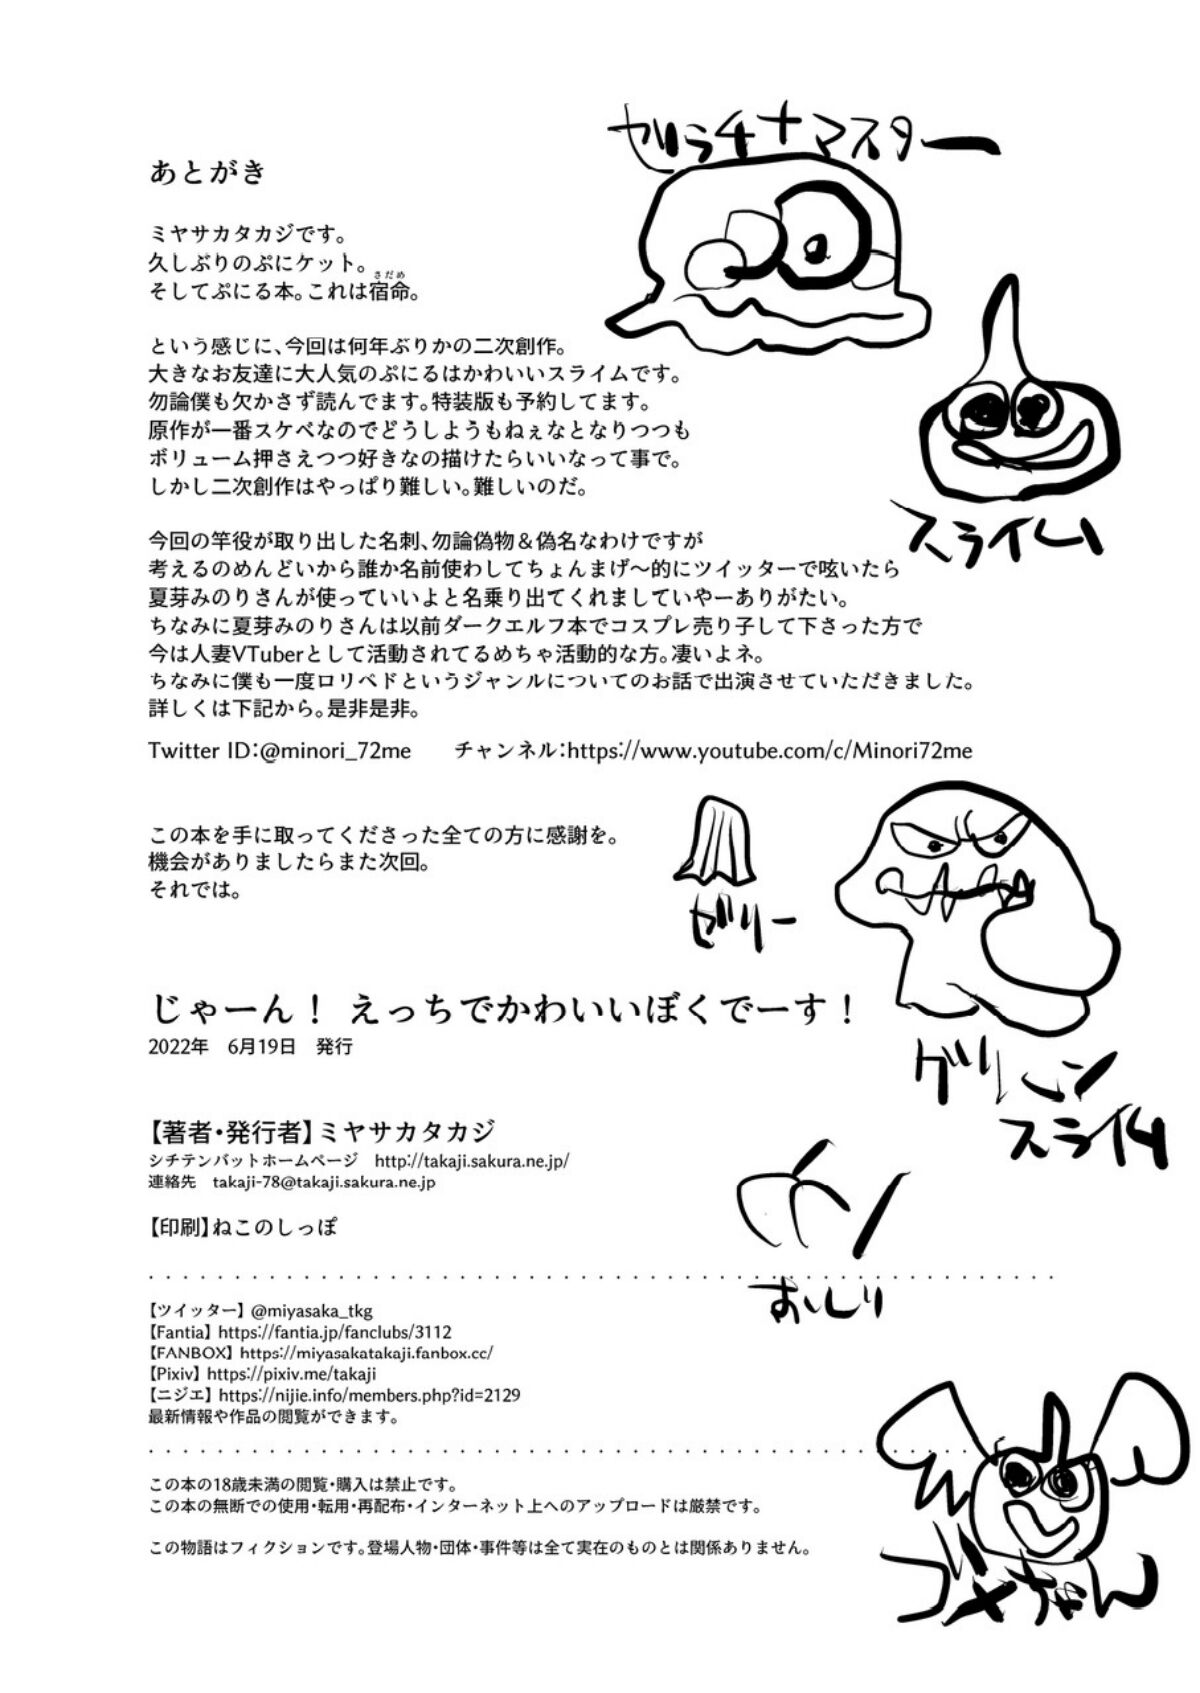 ゼラチナマスター
あとがき
ミヤサカタカジです。
久しぶりのぷにケット。
さだめ
そしてぷにる本。これは宿命。
という感じに、今回は何年ぶりかの二次創作。
大きなお友達に大人気のぷにるはかわいいスライムです。
勿論僕も欠かさず読んでます。特装版も予約してます。
原作が一番スケベなのでどうしようもねぇなとなりつつも
ボリューム押さえつつ好きなの描けたらいいなって事で。
しかし二次創作はやっぱり難しい。難しいのだ。
スライム
今回の竿役が取り出した名刺、勿論偽物&偽名なわけですが
考えるのめんどいから誰か名前使わしてちょんまげ〜的にツイッターで呟いたら
夏芽みのりさんが使っていいよと名乗り出てくれましていやーありがたい。
ちなみに夏芽みのりさんは以前ダークエルフ本でコスプレ売り子して下さった方で
今は人妻VTuberとして活動されてるめちゃ活動的な方。凄いよネ。
ちなみに僕も一度ロリベドというジャンルについてのお話で出演させていただきました。
詳しくは下記から。是非是非。
Twitter ID:@minori_72me チャンネル:https://www.youtube.com/c/Minori72me
この本を手に取ってくださった全ての方に感謝を。
機会がありましたらまた次回。
それでは。
ゼリー
じゃーん! えっちでかわいいぼくでーす!
2022年 6月19日 発行
グリーン
スライム
【著者・発行者】ミヤサカタカジ
シチテンバットホームページ http://takaji.sakura.ne.jp/
連絡先 takaji-78@takaji.sakura.ne.jp
【印刷】ねこのしっぽ
おしり
【ツイッター】@miyasaka_tkg
【Fantia】https://fantia.jp/fanclubs/3112
【FANBOX】https://miyasakatakaji.fanbox.cc/
【Pixiv】https://pixiv.me/takaji
【ニジエ】https://nijie.info/members.php?id=2129
最新情報や作品の閲覧ができます。
この本の18歳未満の閲覧・購入は禁止です。
この本の無断での使用・転用・再配布・インターネット上へのアップロードは厳禁です。
この物語はフィクションです。登場人物・団体・事件等は全て実在のものとは関係ありません。
ゴメちゃん